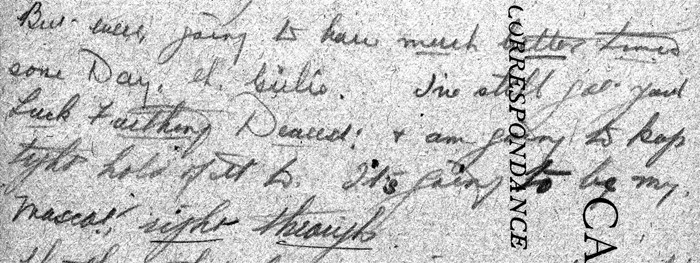 But were going to have much better times
some Day, eh. Girlie. I've still got your
Luck Farthing Dearest; & am going to keep
tight hold of it to. Its going to be my
Mascot, right through.
CORRESPONDANCE
CA